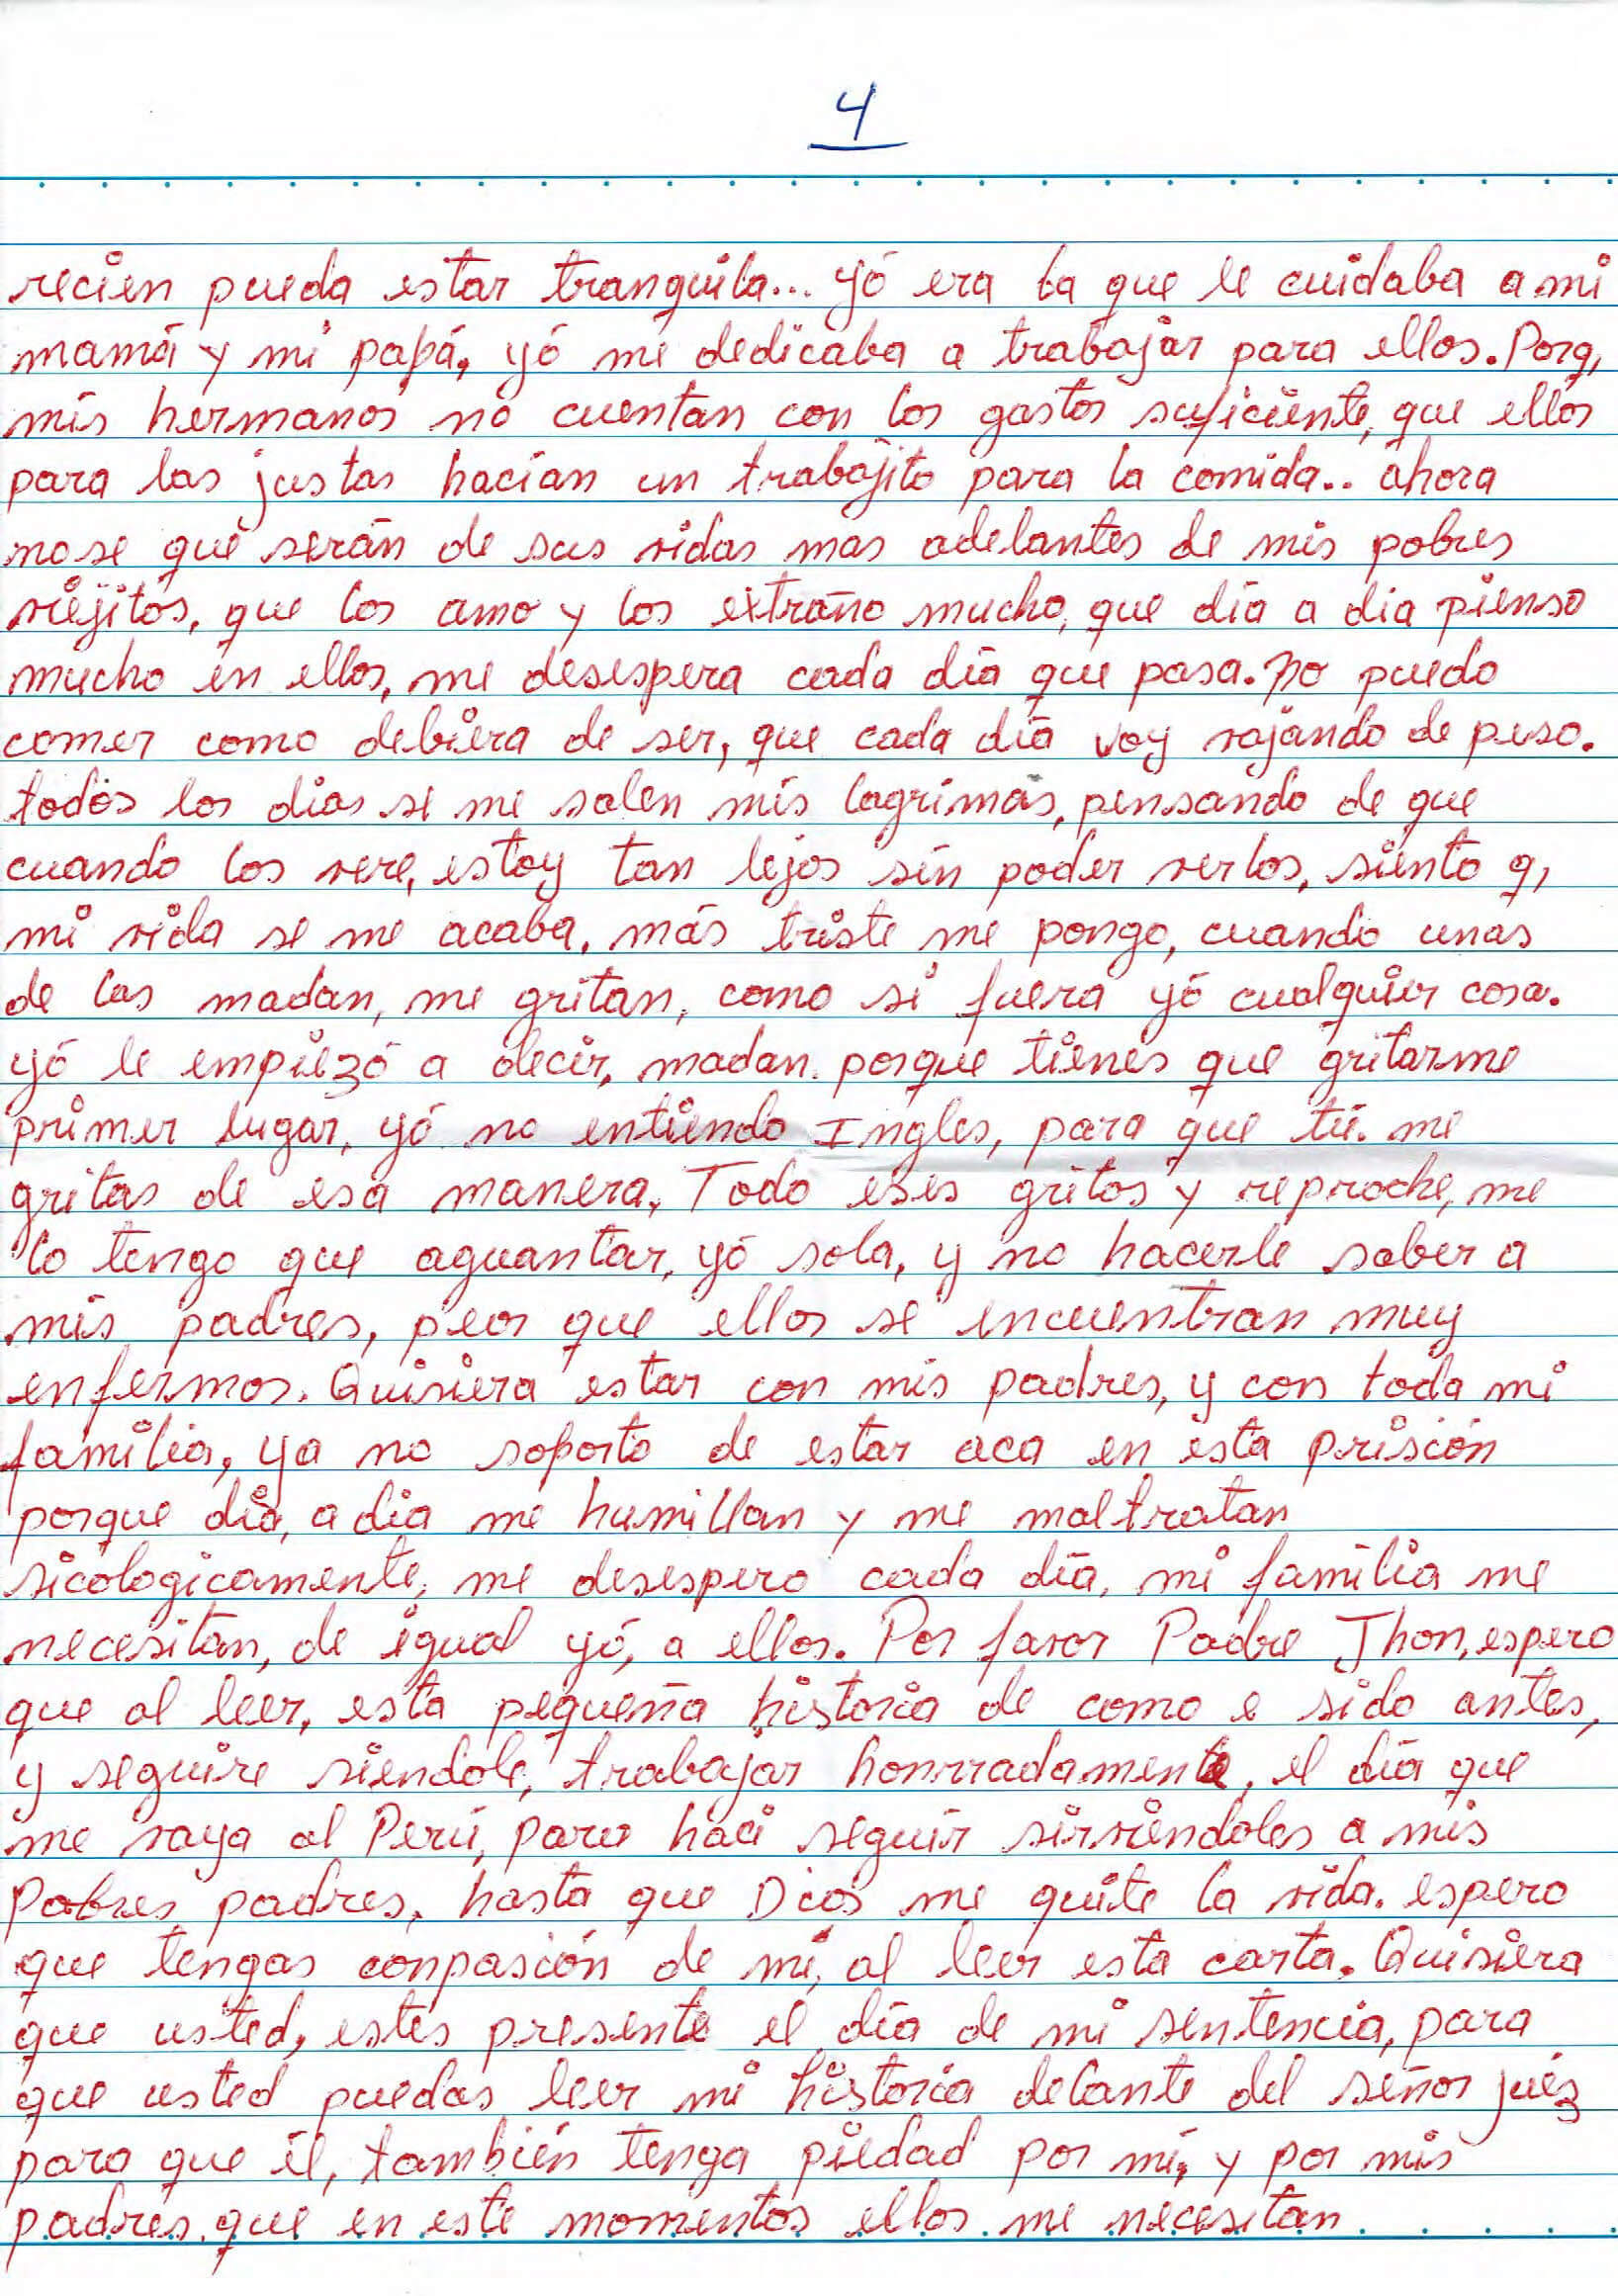 4
recien pueda estar tranquila... yó era la que le cuidaba a mi
mamá y mi papá, yó me dedicaba a trabajar para ellos. Porq,
mis hermanos no cuentan con los gastos suficiente, que ellos
para las justas hacían un trabajito para la comida.. ahora
nose qué serán de sus vidas mas adelantes de mis pobres
viejitos, que los amo y los extraño mucho, que día a dia pienso
mucho en ellos, me desespera cada día que pasa. no puedo
comer como debiera de ser, que cada día voy vajando de peso.
todos los dias se me salen mis lagrimas, pensando de que
cuando los vere, estoy tan lejos sin poder verlos, siento q,
mi vida se me acaba, más triste me pongo, cuando unas
de las madan, me gritan, como si fuera yó cualquier cosa.
yó le empiezó a decir, madan. porque tienes que gritarme
primer lugar, yó no entiendo Ingles, para que tú. me
gritas de esa manera, Todo eses gritos y reproche, me
lo tengo que aguantar, yó sola, y no hacerle saber a
mis padres, peor que ellos se encuentran muy
enfermos. Quisiera estar con mis padres, y con toda mi
familia, ya no soporto de estar aca en esta prisión
porque día, a dia me humillan y me maltratan
sicologicamente, me desespero cada día, mi familia me
necesitan, de igual yó, a ellos. Por favor Padre Jhon, espero
que al leer, esta pequeña historia de como e sido antes,
y seguire siendole, trabajar honrradamente, el día que
me vaya al Perú, para haci seguir sirviendoles a mis
Pobres padres, hasta que Dios me quite la vida. espero
que tengas conpasión de mí, al leer esta carta. Quisiera
que usted, estes presente el día de mi sentencia, para
que usted puedas leer mi historia delante del señor juéz
para que él, también tenga piedad por mí, y por mis
padres, que en este momentos ellos me necesitan